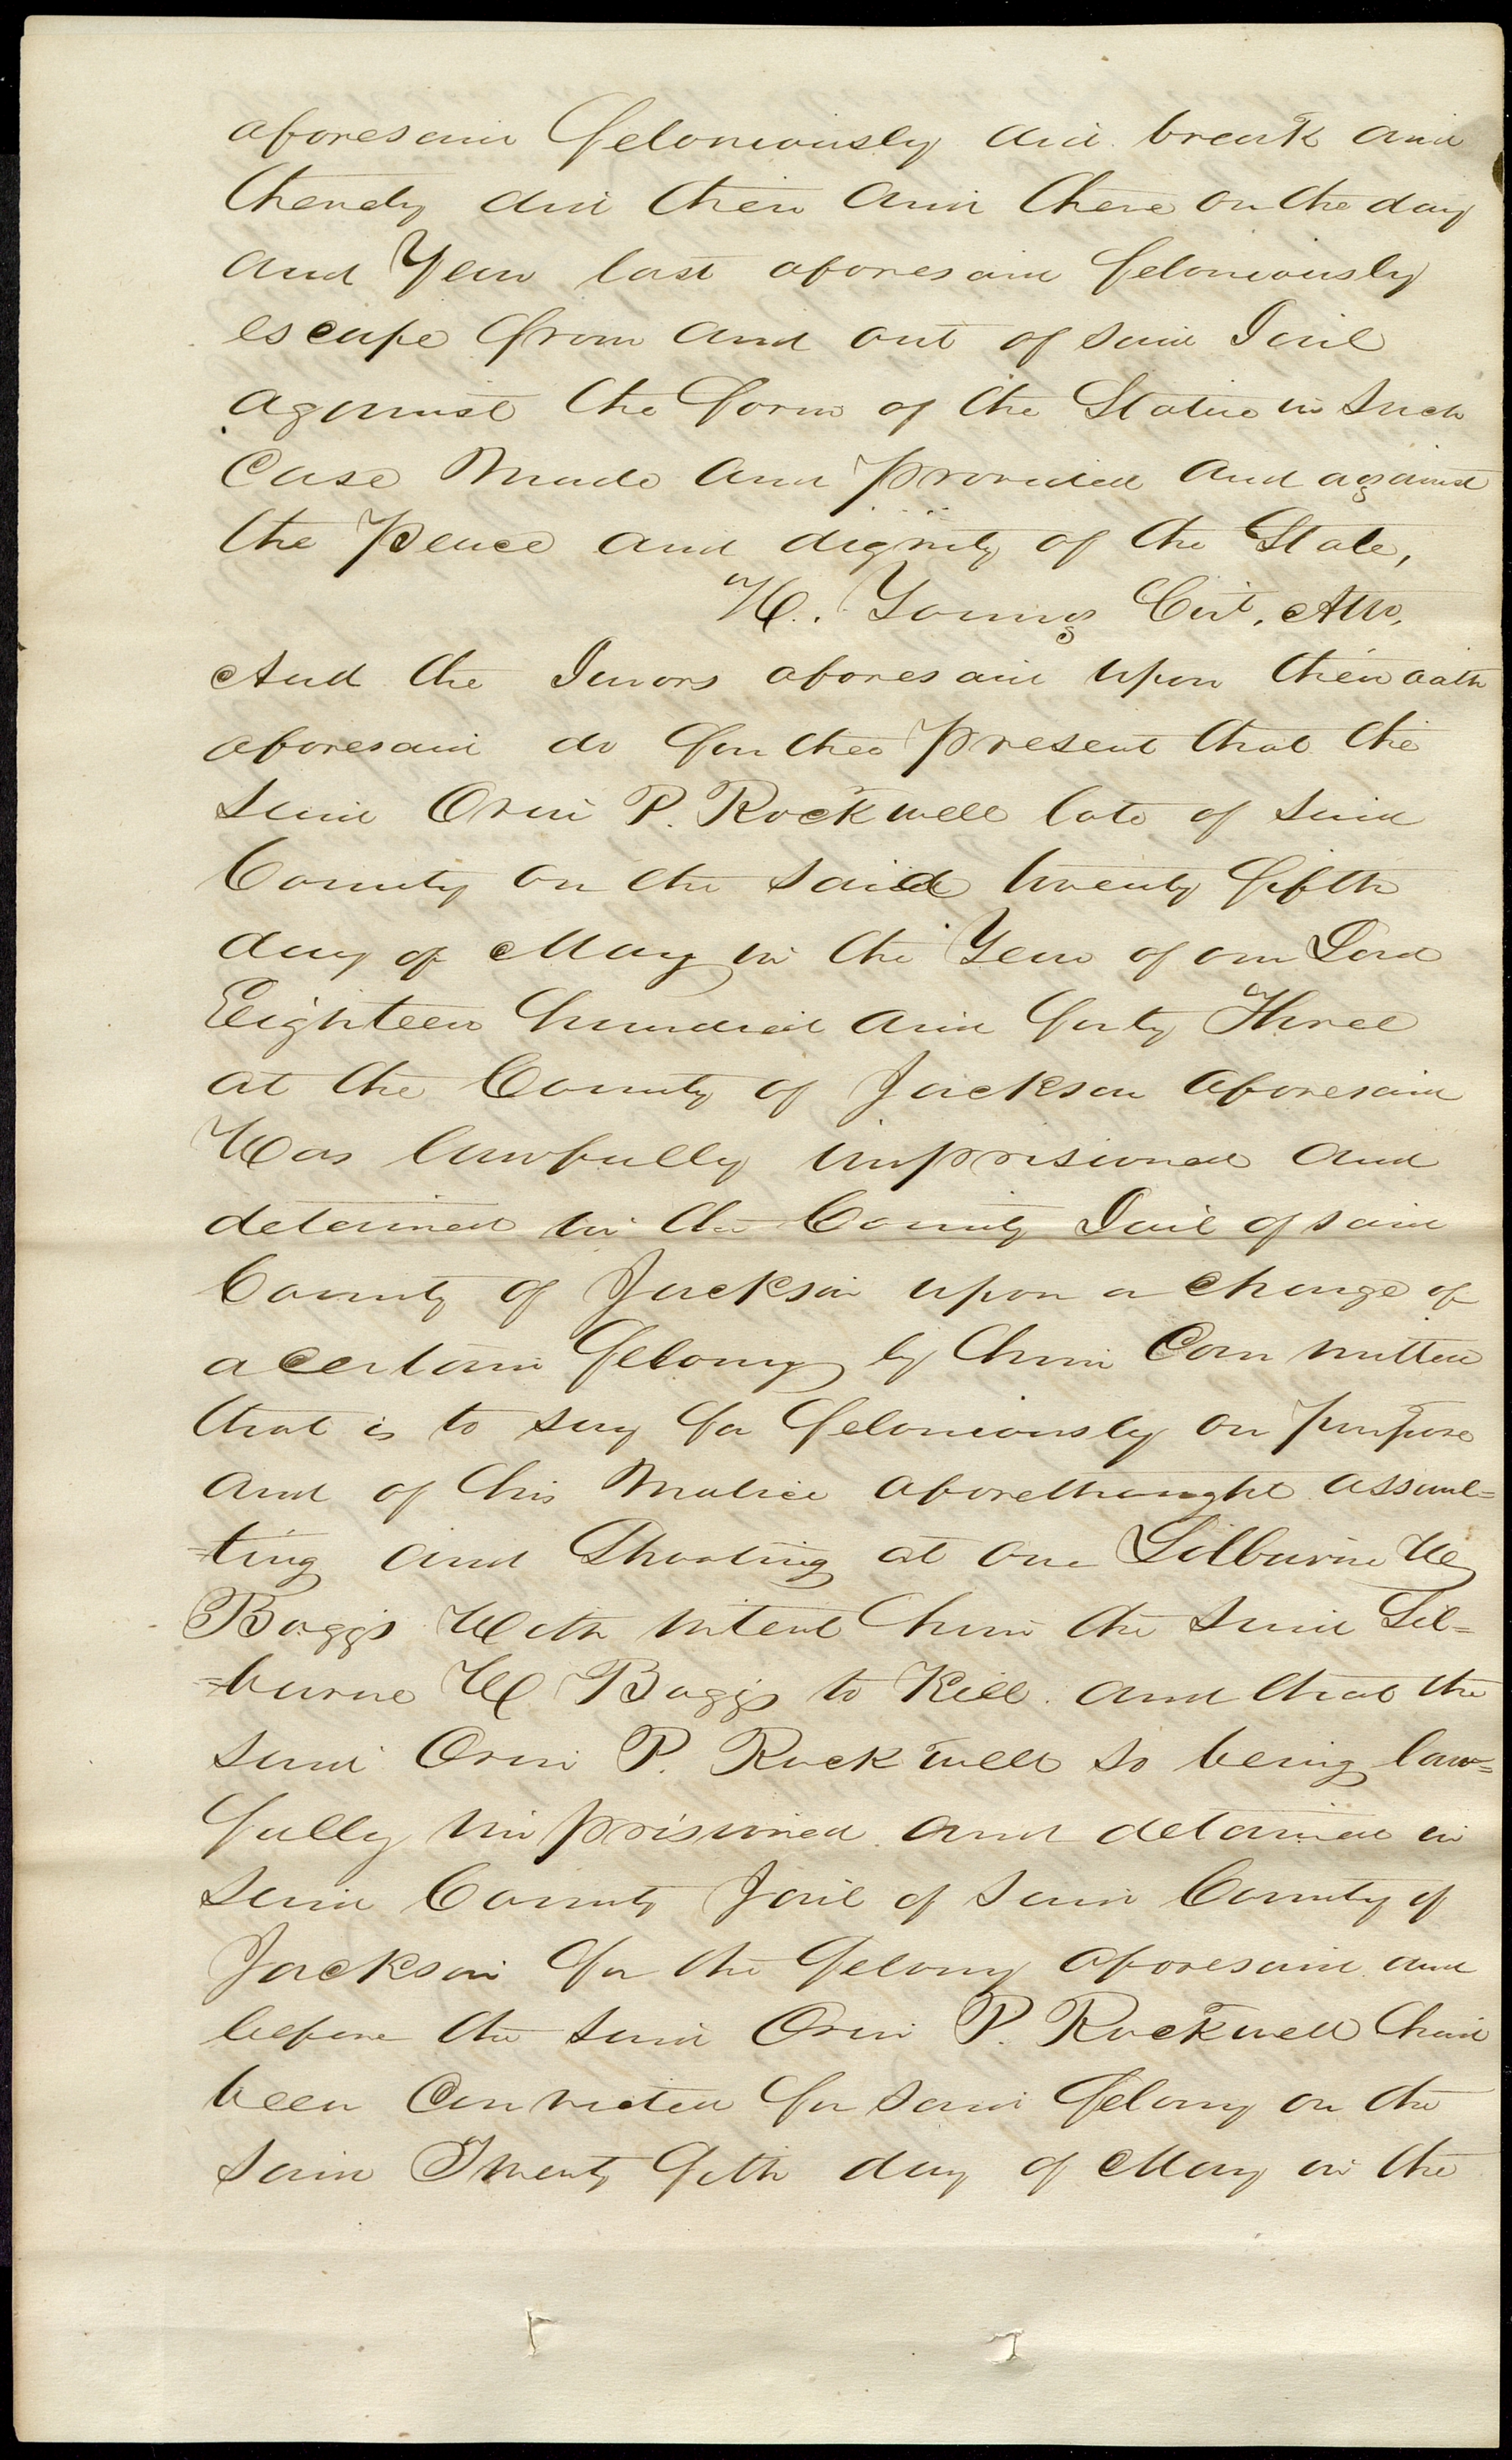 aforesaid feloniously did break and
thereby did then and there on the day
and Year last aforesaid feloniously
escape from and out of said Jail
against the form of the Statue in Such
Case Made and provided and against
the peace and dignity of the State,
H. Young Cir. Att.
And the Jurors aforesaid upon their oath
aforesaid do further present that the
said Orin P. Rockwell late of said
County on the said twenty fifth
day of May in the Year of our Lord
Eighteen hundred and forty Three
at the County of Jackson aforesaid
Was lawfully imprisioned and
detained in the County Jail of said
County of Jackson upon a charge of
a certain felony by him Committed
that is to say for feloniously on purpose
and of his Malice aforethought assaul=
=ting and Shooting at one Lilburne W
Boggs With intent him the said Lil=
=burne W. Boggs to Kill. and that the
said Orin P. Rockwell so being law=
fully imprisioned and detained in
said County Jail of said County of
Jackson for the felony aforesaid and
before the said Orin P. Rockwell had
been Convicted for said felony on the
said Twenty fifth day of May in the